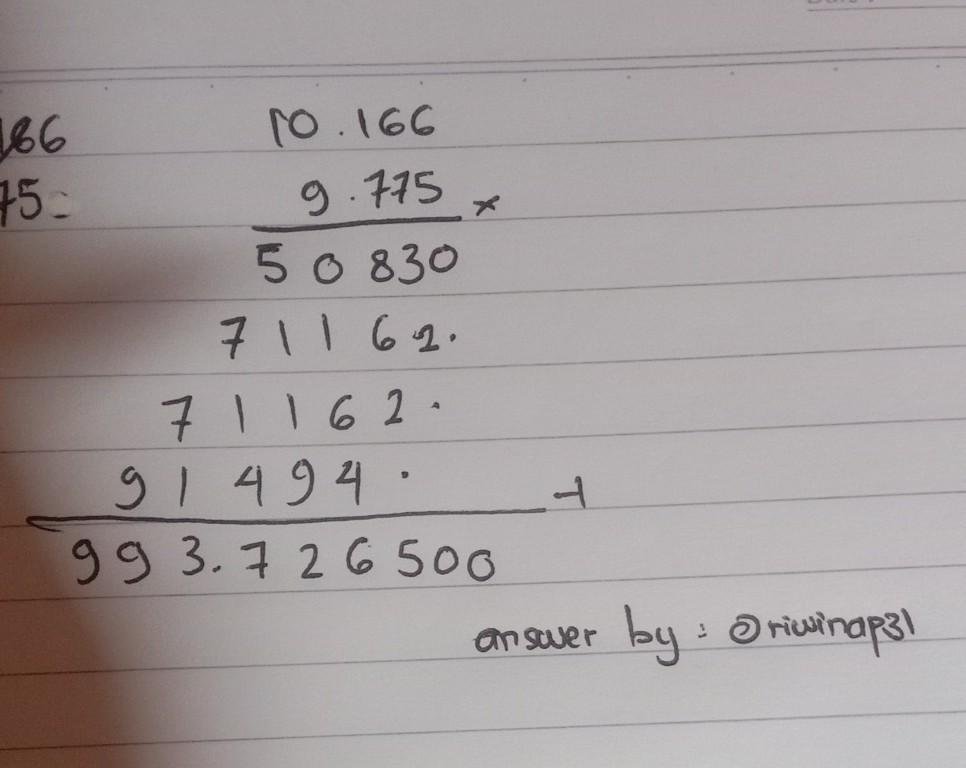 186
10.166
75
9.775 ×
50830
71162.
71162.
91494. +
993.726500
answer by: @riwinap31